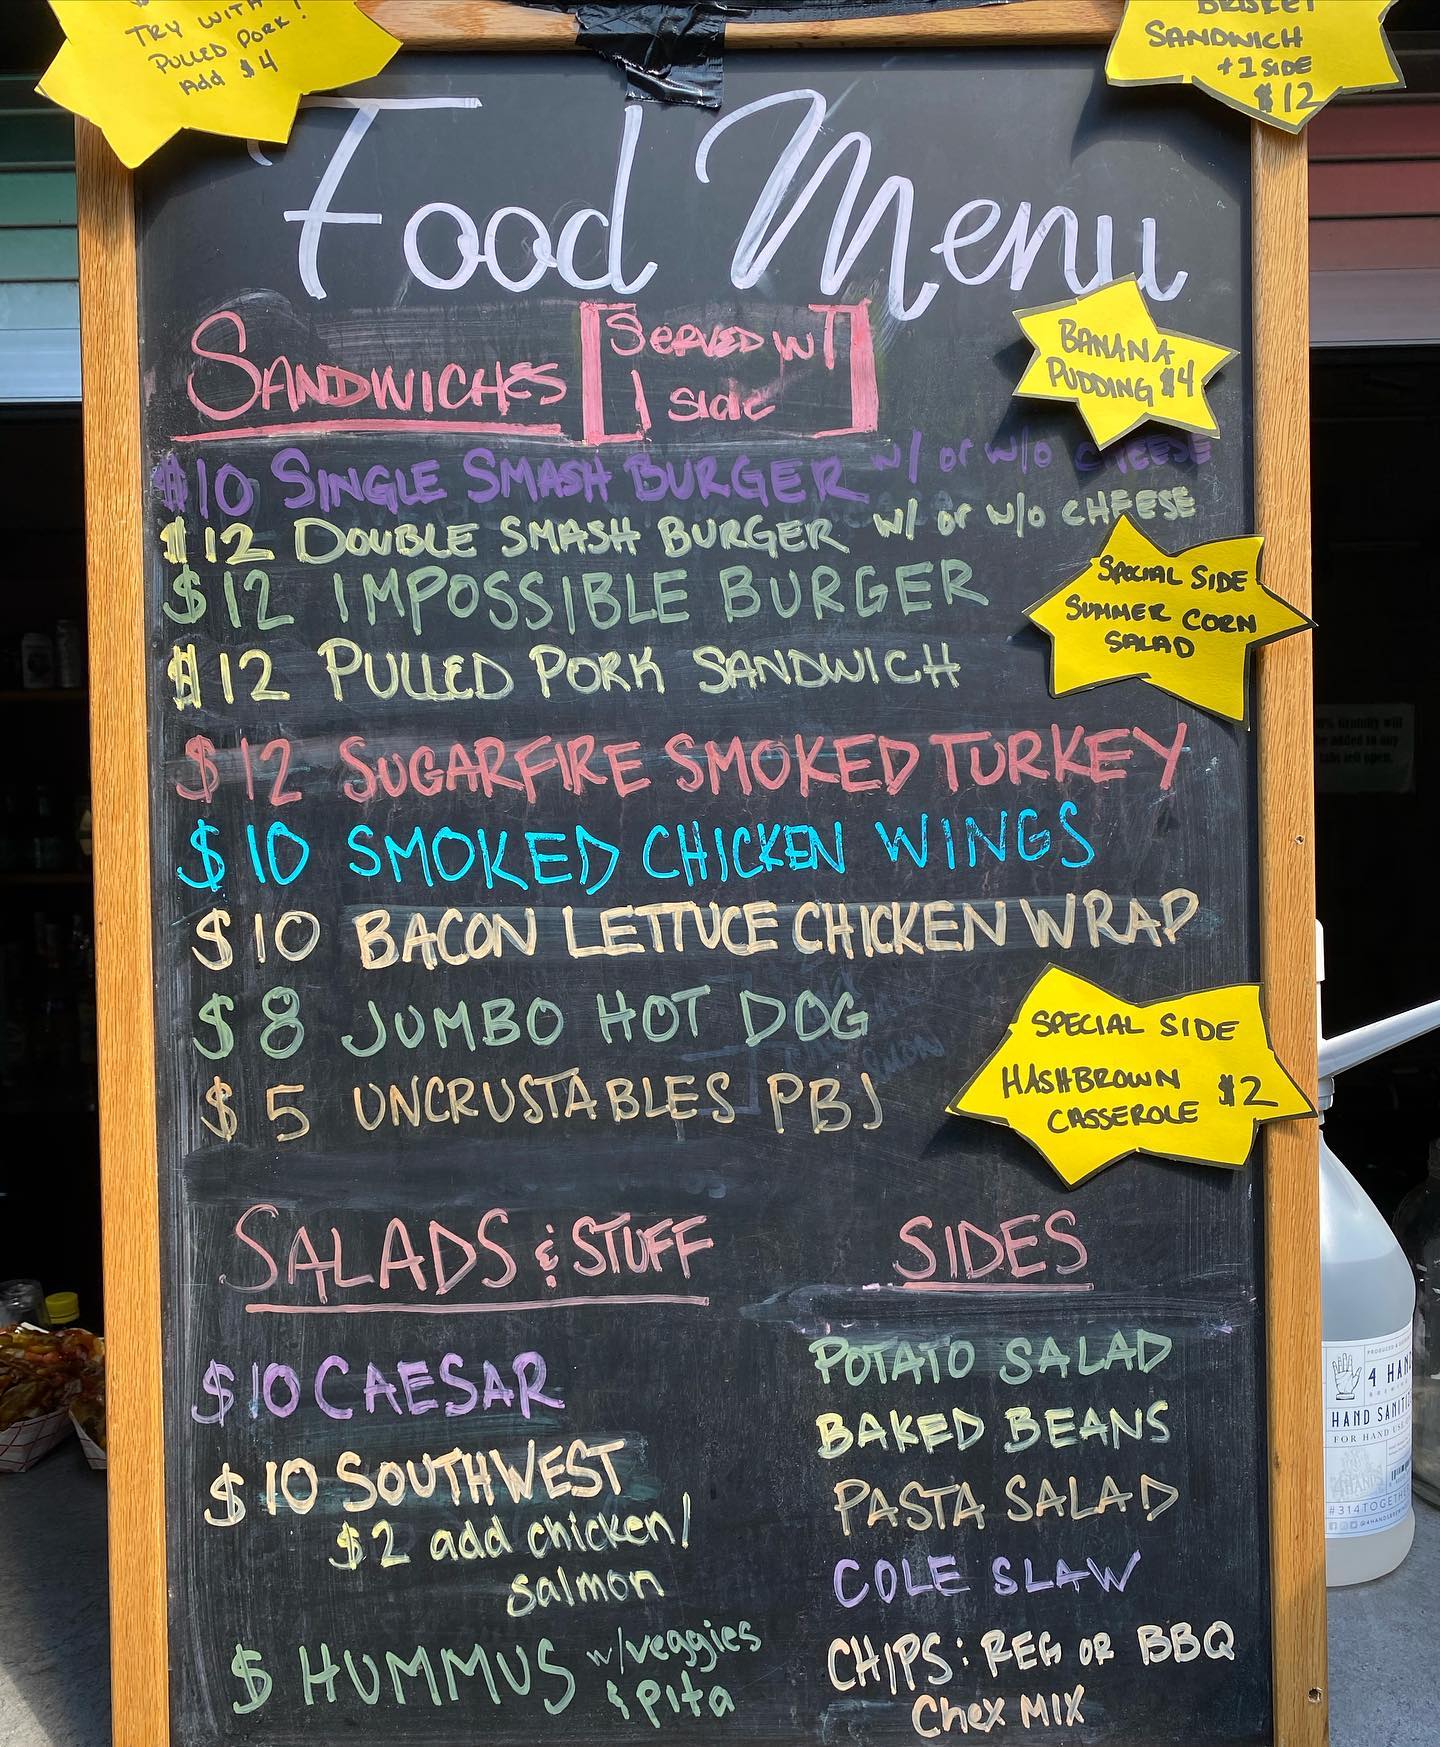 TRY WITH
PULLED PORK!
Add $4
BRISKET
SANDWICH
+ 1 SIDE
$12
Food Menu
SANDWICHES
SERVED W/
1 side
BANANA
PUDDING $4
$10 SINGLE SMASH BURGER w/ or w/o CHEESE
$12 DOUBLE SMASH BURGER w/ or w/o CHEESE
$12 IMPOSSIBLE BURGER
SPECIAL SIDE
SUMMER CORN
SALAD
$12 PULLED PORK SANDWICH
$12 SUGARFIRE SMOKED TURKEY
$10 SMOKED CHICKEN WINGS
$10 BACON LETTUCE CHICKEN WRAP
$8 JUMBO HOT DOG
$5 UNCRUSTABLES PBJ
SPECIAL SIDE
HASHBROWN $2
CASSEROLE
SALADS & STUFF
$10 CAESAR
$10 SOUTHWEST
$2 add chicken/
salmon
$ HUMMUS w/veggies
& pita
SIDES
POTATO SALAD
BAKED BEANS
PASTA SALAD
COLE SLAW
CHIPS: REG OR BBQ
Chex MIX
4 HAN
HAND SANITI
FOR HAND US
#314TOGETHE